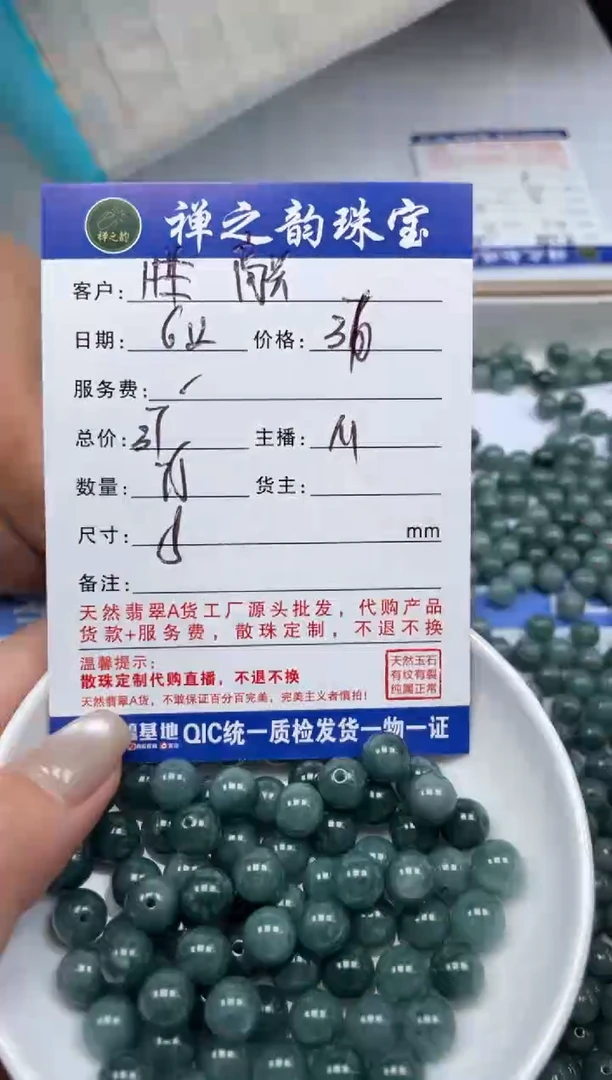 禅之韵
禅之韵珠宝
客户:
日期: 价格:
服务费:
总价: 主播: M
数量: 货主:
尺寸: mm
备注:
天然翡翠A货工厂源头批发，代购产品
货款+服务费，散珠定制，不退不换
温馨提示:
散珠定制代购直播，不退不换
天然翡翠A货，不敢保证百分百完美，完美主义者慎拍!
天然玉石
有纹有裂
纯属正常
基地 QIC统一质检发货一物一证